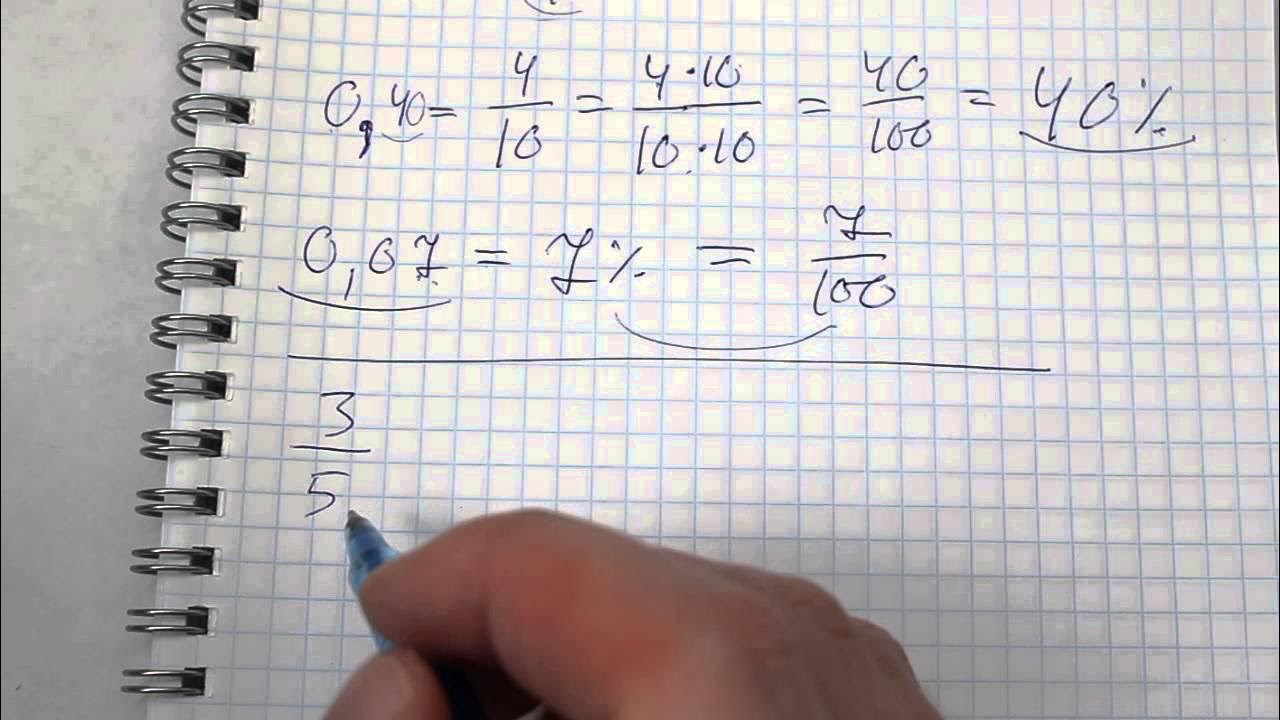 0,40 = 4/10 = 4·10/10·10 = 40/100 = 40%
0,07 = 7% = 7/100
3/5